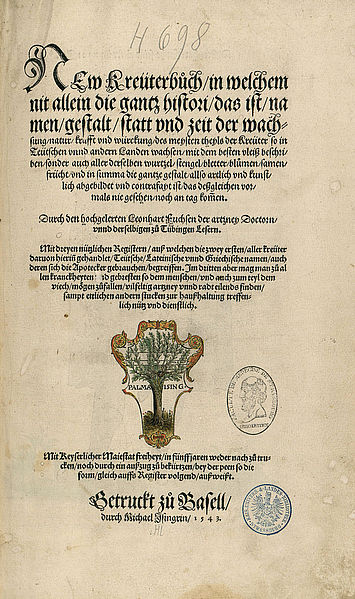 4698
New Kreüterbůch/in welchem
nit allein die gantz histori/das ist/na
men/gestalt/statt vnd zeit der wach-
sung/natur/krafft vnd würckung/des meysten theyls der Kreüter so in
Teütschen vnnd andern Landen wachsen/mit dem besten vleiß beschri-
ben/sonder auch aller derselben wurtzel/stengel/bletter/blůmen/samen/
frücht/vnd in summa die gantze gestalt/allso artlich vnd kunst-
lich abgebildet vnd contrafayt ist/das deßgleichen vor-
mals nie gesehen/noch an tag kom̃en.
Durch den hochgelerten Leonhart Fuchsen der artzney Doctorn/
vnnd derselbigen zů Tübingen Lesern.
Mit dreyen nützlichen Registern/auß welchen die zwey ersten/aller kreüter
daruon hierin̄ gehandlet/Teütsche/Lateinische vnnd Griechische namen/auch
deren sich die Apotecker gebrauchen/begreiffen. Im dritten aber mag man zů al
len kranckheyten vnd gebresten so dem menschen/vnd auch zum teyl dem
viech/mögen zůfallen/vilfeltig artzney vnnd radt eilends finden/
sampt etlichen andern stucken zur haußhaltung treffen-
lich nütz vnd dienstlich.
PALMA ISING
Mit Keyserlicher Maiestat freiheyt/in fünff jaren weder nach zů tru-
cken/noch durch ein außzug zů bekürtzen/bey der peen so die
form/gleich auffs Register volgend/außweißt.
Getruckt zů Basell/
durch Michael Isingrin/1543.